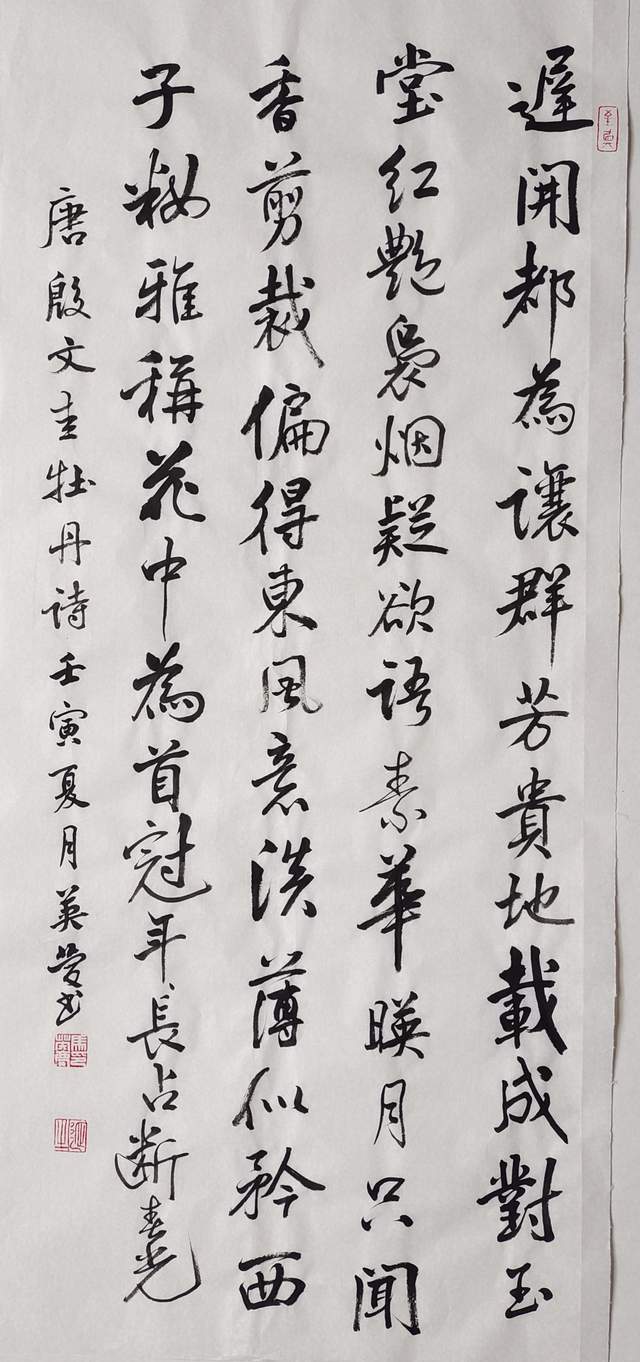 遲開都為讓群芳貴地載成對玉
堂紅艷裊烟疑欲語素華暎月只聞
香剪裁偏得東風意淡薄似矜西
子粧雅稱花中為首冠年長占斷春光
唐殷文圭牡丹詩壬寅夏月英書